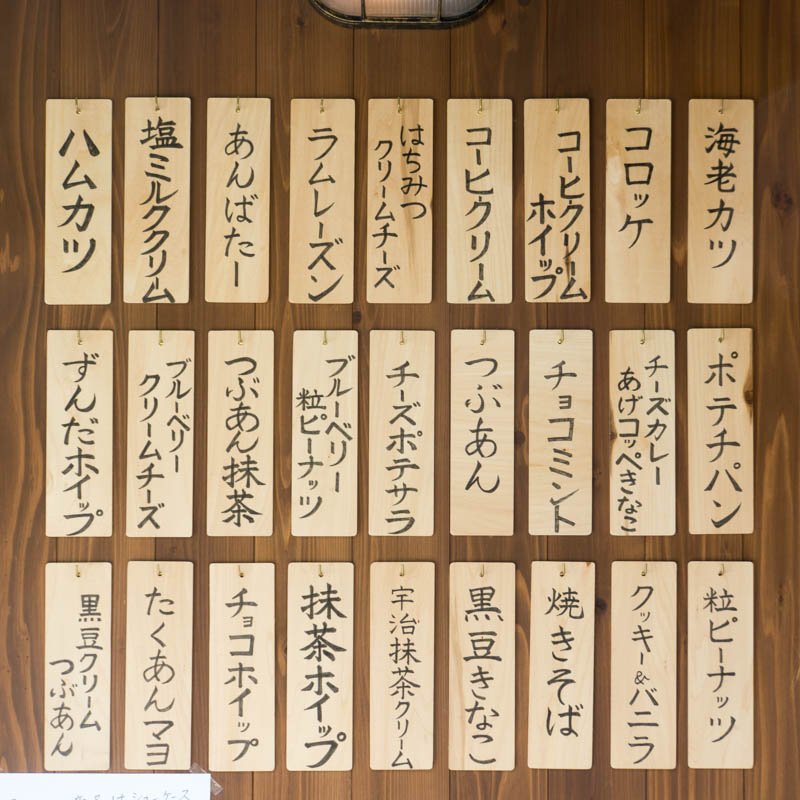 海老カツ
コロッケ
コーヒクリーム
ホイップ
コーヒクリーム
はちみつ
クリームチーズ
ラムレーズン
あんばたー
塩ミルククリーム
ハムカツ
ポテチパン
チーズカレー
あげコッペきなこ
チョコミント
つぶあん
チーズポテサラ
ブルーベリー
粒ピーナッツ
つぶあん抹茶
ブルーベリー
クリームチーズ
ずんだホイップ
粒ピーナッツ
クッキー&バニラ
焼きそば
黒豆きなこ
宇治抹茶クリーム
抹茶ホイップ
チョコホイップ
たくあんマヨ
黒豆クリーム
つぶあん
はショーケース